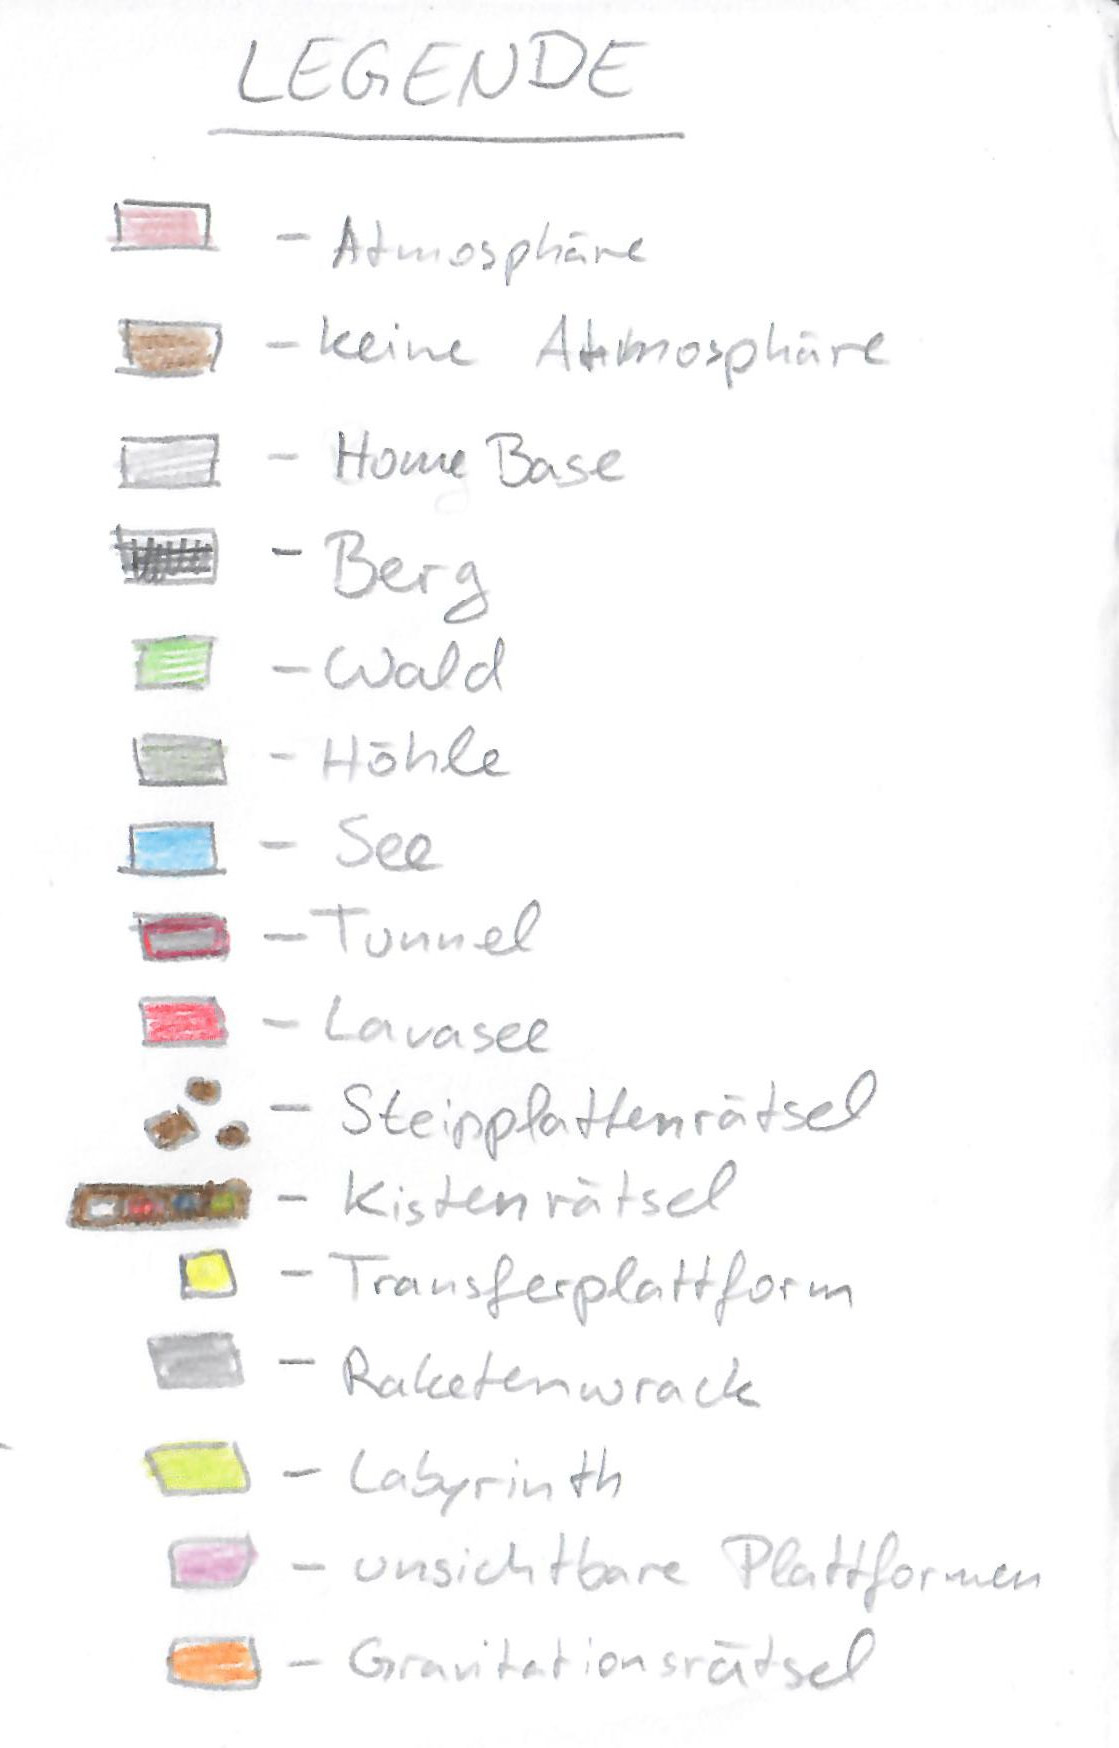 LEGENDE
- Atmosphäre
- keine Atmosphäre
- Home Base
- Berg
- Wald
- Höhle
- See
- Tunnel
- Lavasee
- Steinplattenrätsel
- Kistenrätsel
- Transferplattform
- Raketenwrack
- Labyrinth
- unsichtbare Plattformen
- Gravitationsrätsel